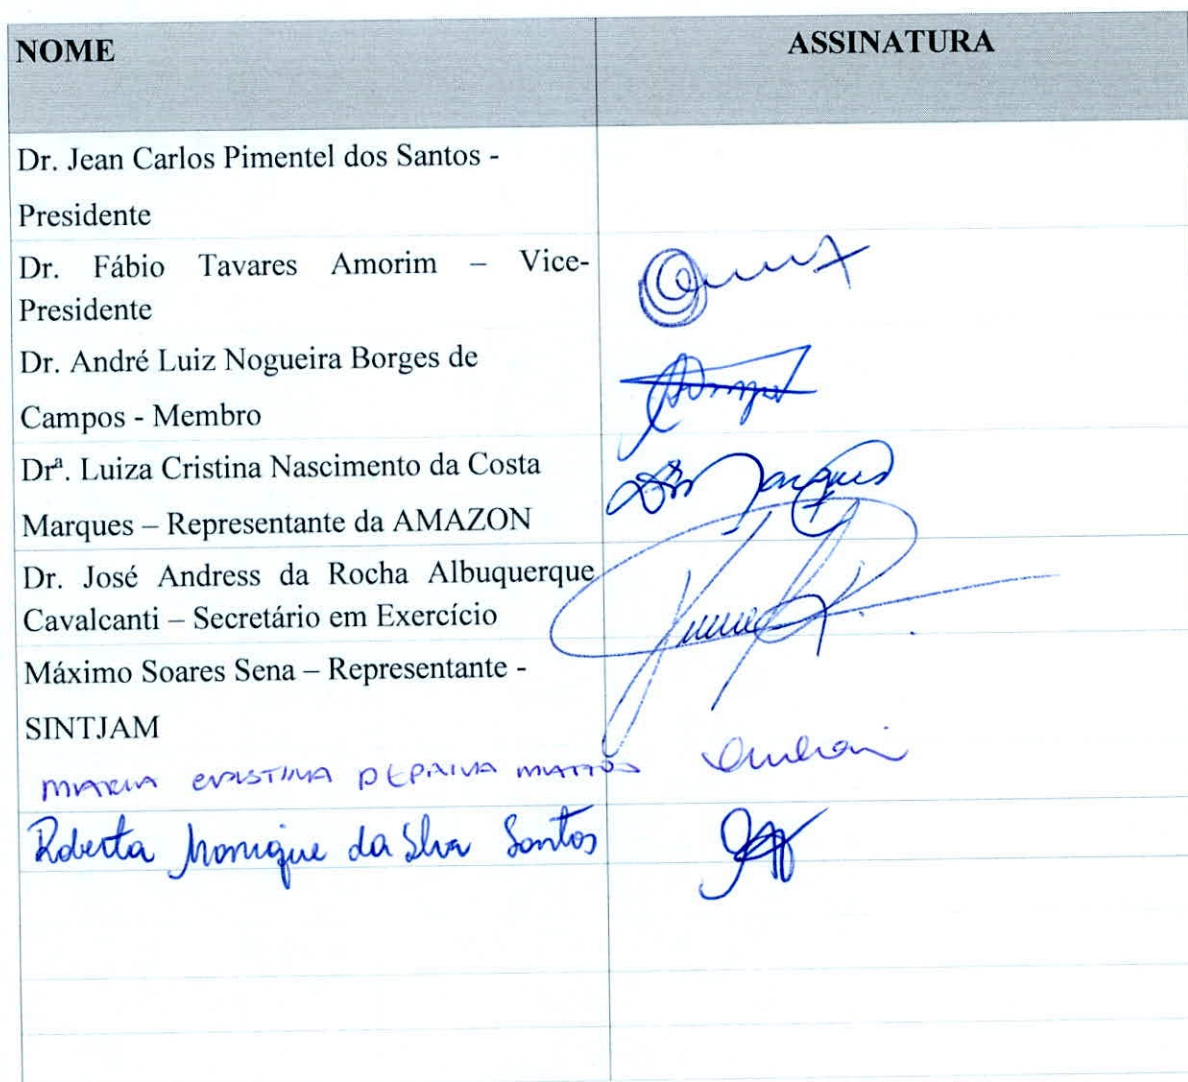 NOME ASSINATURA
Dr. Jean Carlos Pimentel dos Santos -
Presidente
Dr. Fábio Tavares Amorim – Vice-
Presidente
Dr. André Luiz Nogueira Borges de
Campos - Membro
Drª. Luiza Cristina Nascimento da Costa
Marques – Representante da AMAZON
Marques
Dr. José Andress da Rocha Albuquerque
Cavalcanti – Secretário em Exercício
Máximo Soares Sena – Representante -
SINTJAM
MARIA CRISTINA DE PAIVA MATTOS
Roberta Monique da Silva Santos